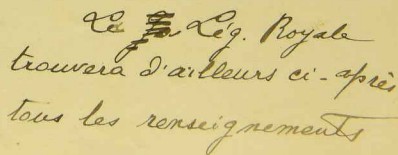 La Lég. Royale
trouvera d'ailleurs ci-après
tous les renseignements